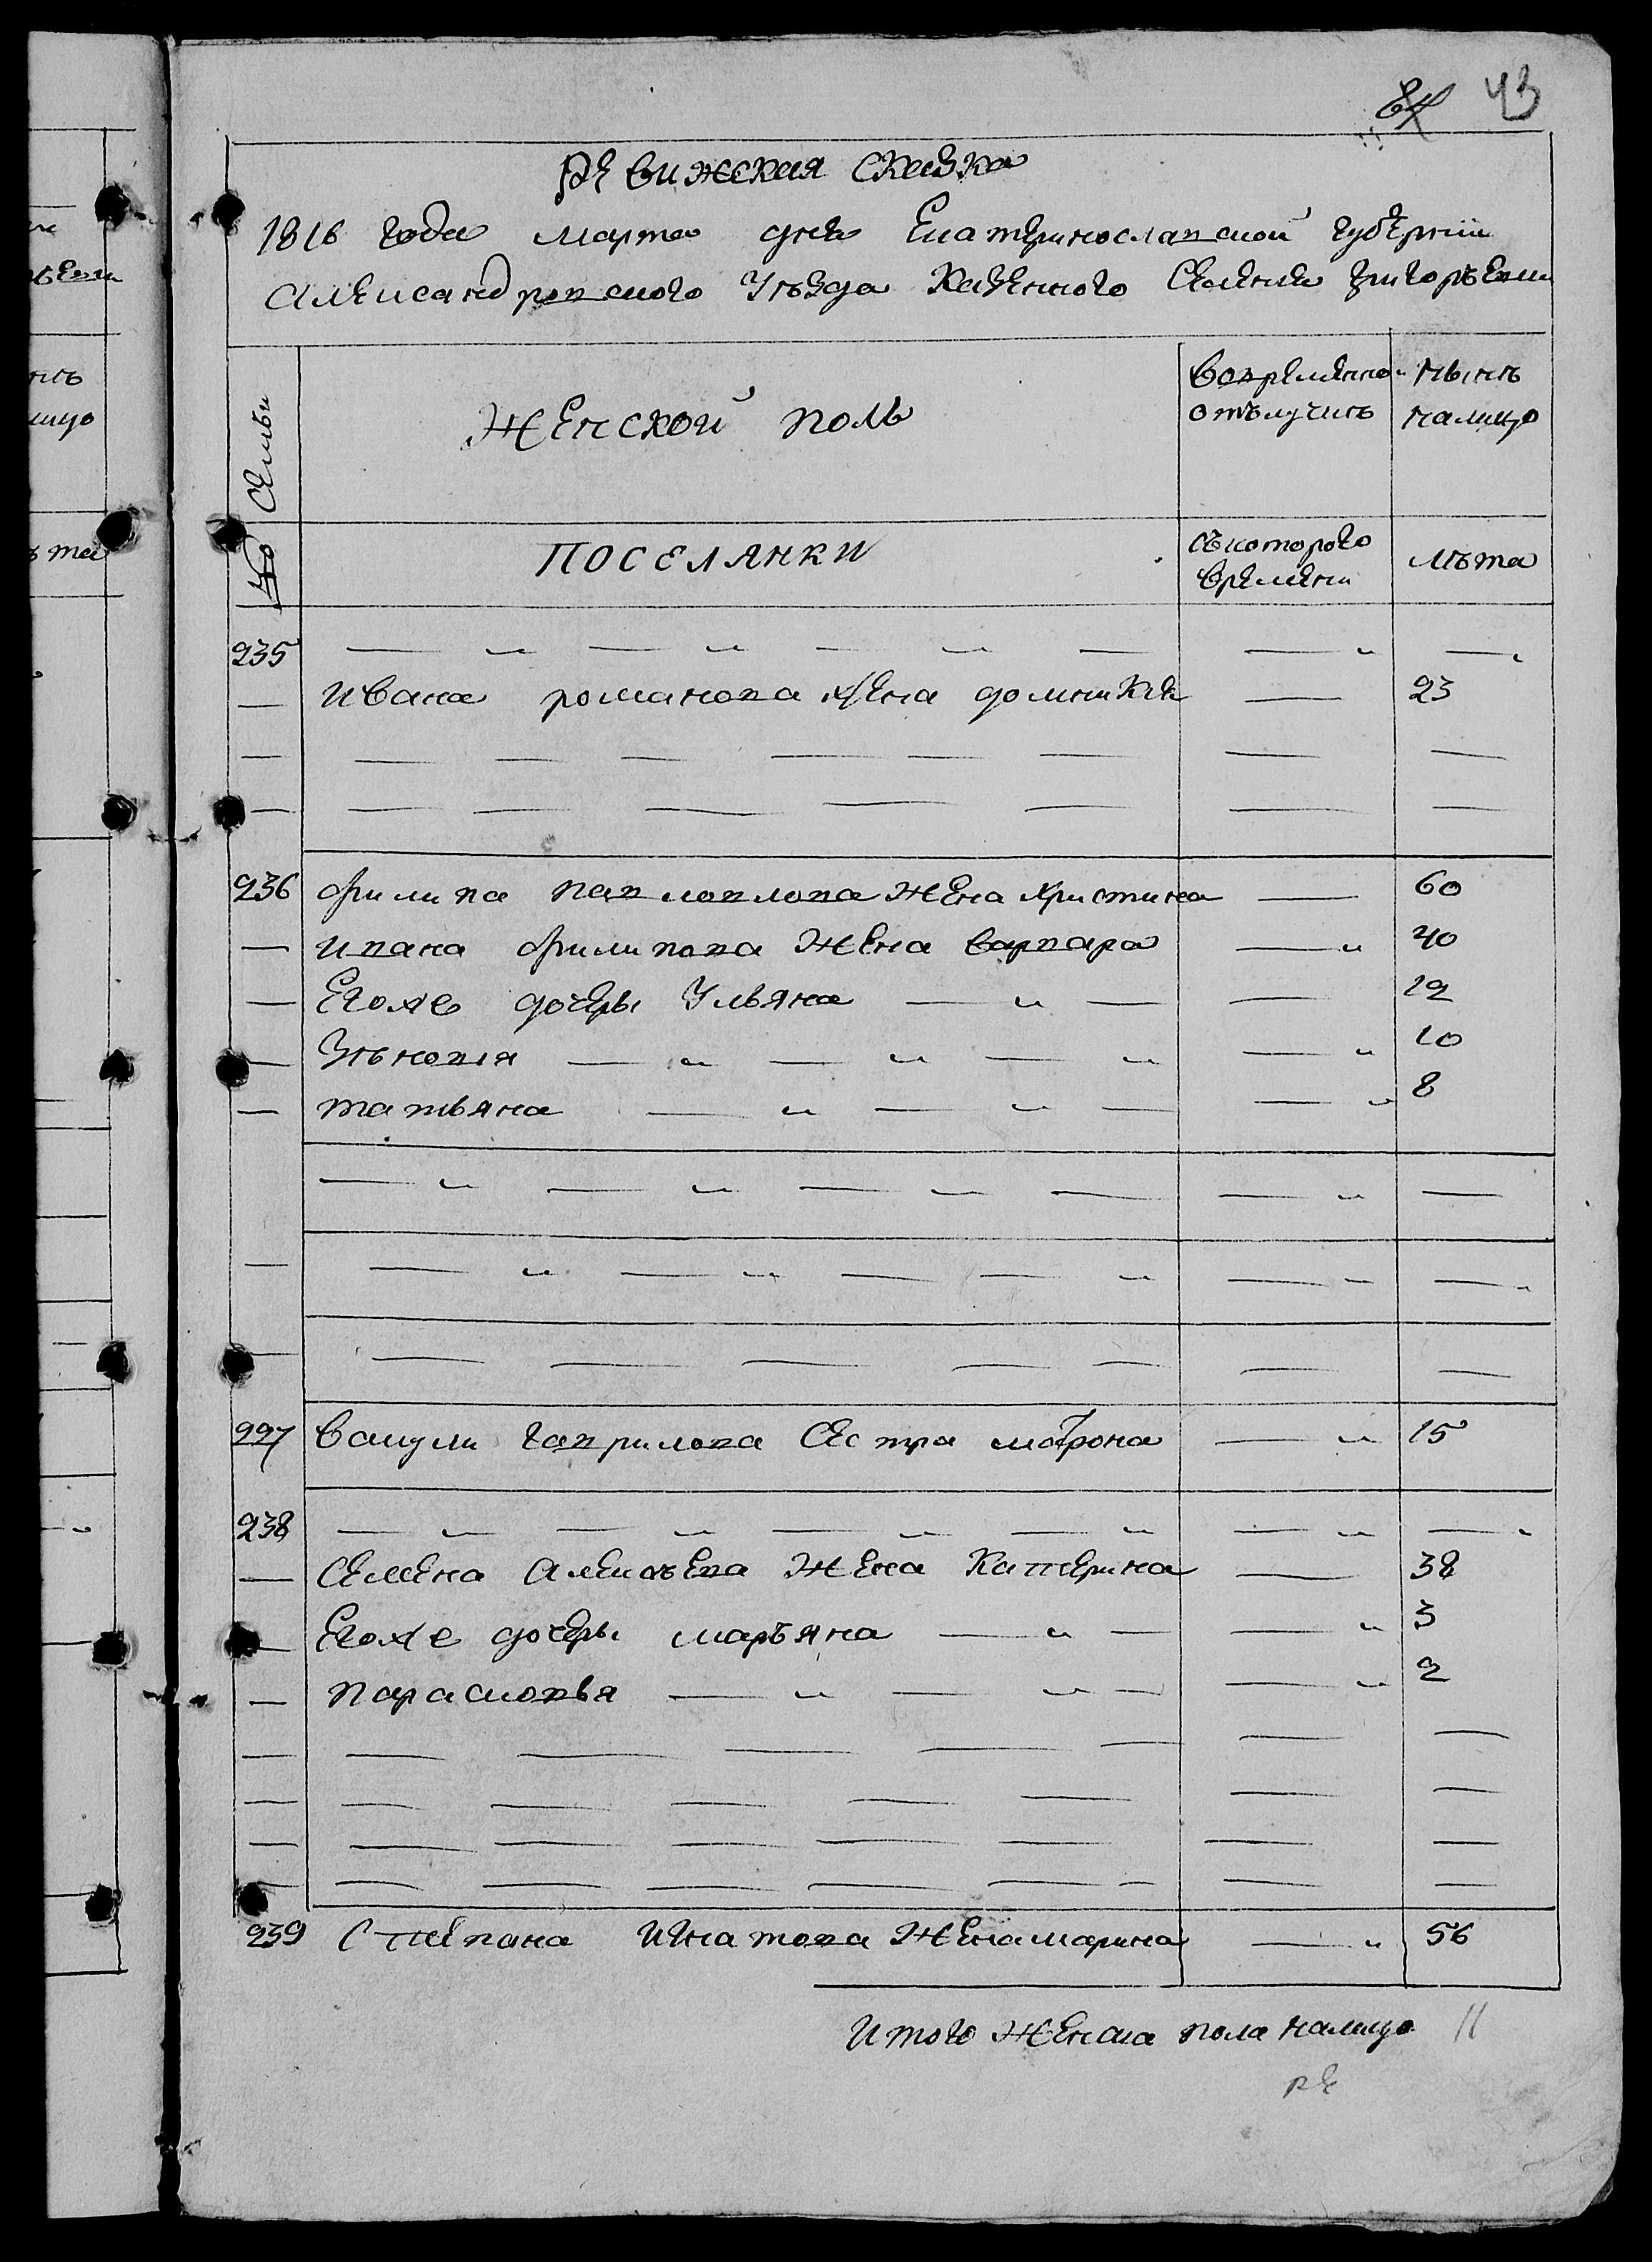 43
Ревижская скаска
1816 года марта дня Екатеринославской губернiи
Александровского Уѣзда Казенного Селения Григорьевки
№ Семьи
Женской поль
Вовременно отълучкѣ
нынѣ налицо
ПОСЕЛЯНКИ
съкоторого времени
лѣта
235 — " — " — " — — " —
— Ивана романова жена домникия — 23
— — — — — — — — —
— — — — — — — — —
236 филипа павловлова жена христина — 60
— ивана филипова жена варвара — " 40
— Егоже дочеры Ульяна — " — — 12
— Зѣновия — " — " — " — " 10
— татьяна — " — " — — " 8
— " — " — " — — " —
— — " — " — — " — " —
— — — — — — — —
237 Вакули гаврилова Сестра мотрона — " 15
238 — " — " — " — " — " —
— Семена Алексѣева жена Катерина — 38
— Егоже дочеры маръяна — " — — " 3
— парасковья — " — " — — " 2
— — — — — — — —
— — — — — — — —
— — — — — — — —
— — — — — — — — —
239 Стпепана Игнатова жена марина — " 56
Итого женска пола налицо 11